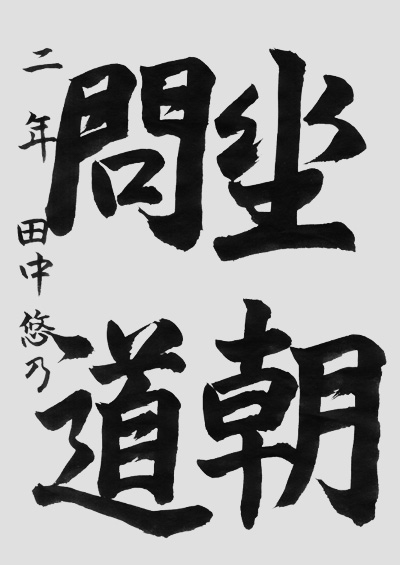 坐朝
問道
二年 田中悠乃